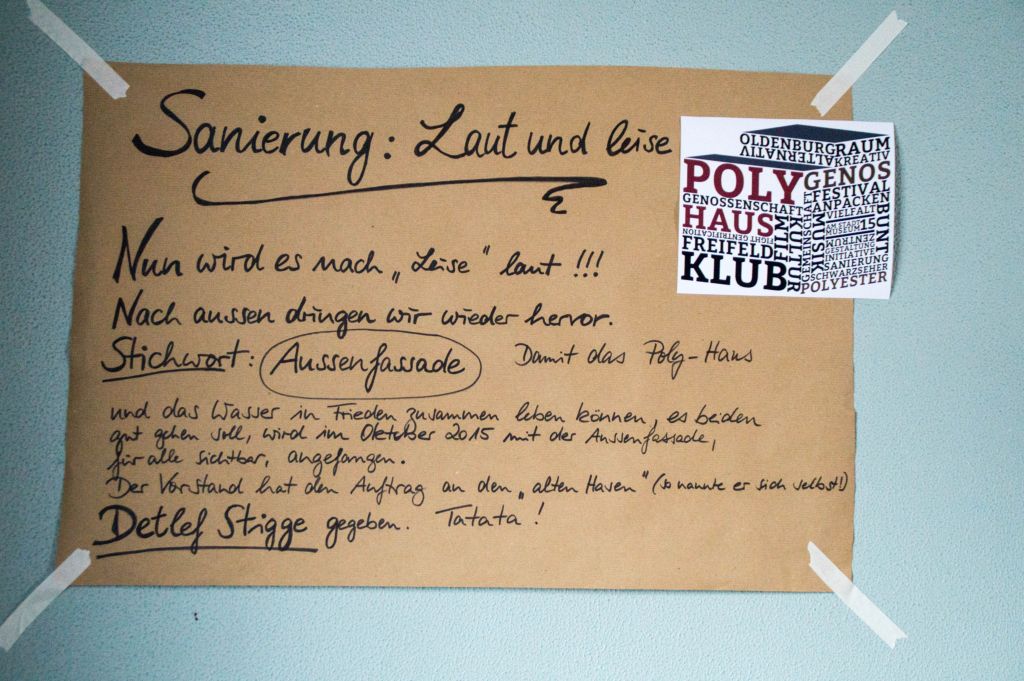 Sanierung: Laut und leise
Nun wird es nach „Leise“ laut !!!
Nach aussen dringen wir wieder hervor.
Stichwort: Aussenfassade Damit das Poly-Haus
und das Wasser in Frieden zusammen leben können, es beiden
gut gehen soll, wird im Oktober 2015 mit der Aussenfassade,
für alle sichtbar, angefangen.
Der Vorstand hat den Auftrag an den „alten Hasen“ (so nannte er sich selbst!)
Detlef Stigge gegeben. Tatata!
OLDENBURG
RAUM
ALTERNATIV
KREATIV
POLY
HAUS
GENOSSENSCHAFT
FIGHT GENTRIFICATION
FREIFELD
KLUB
KULTUR
GENOS
FESTIVAL
ANPACKEN
GEMEINSCHAFT
MUSIK
VIELFALT
AM STADT
MUSEUM
15
ZENTRUM
GESTALTUNG
INITIATIVE
SANIERUNG
SCHWARZSEHER
POLYESTER
BUNT